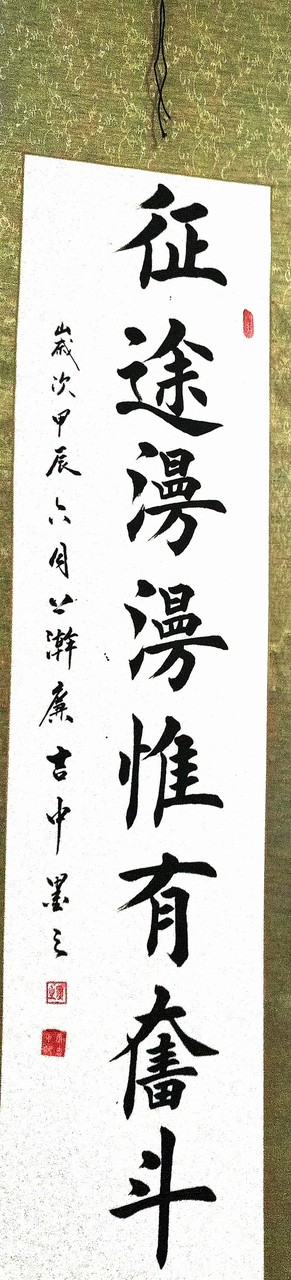 征途漫漫惟有奮斗
歲次甲辰六月上澣廉吉中墨之